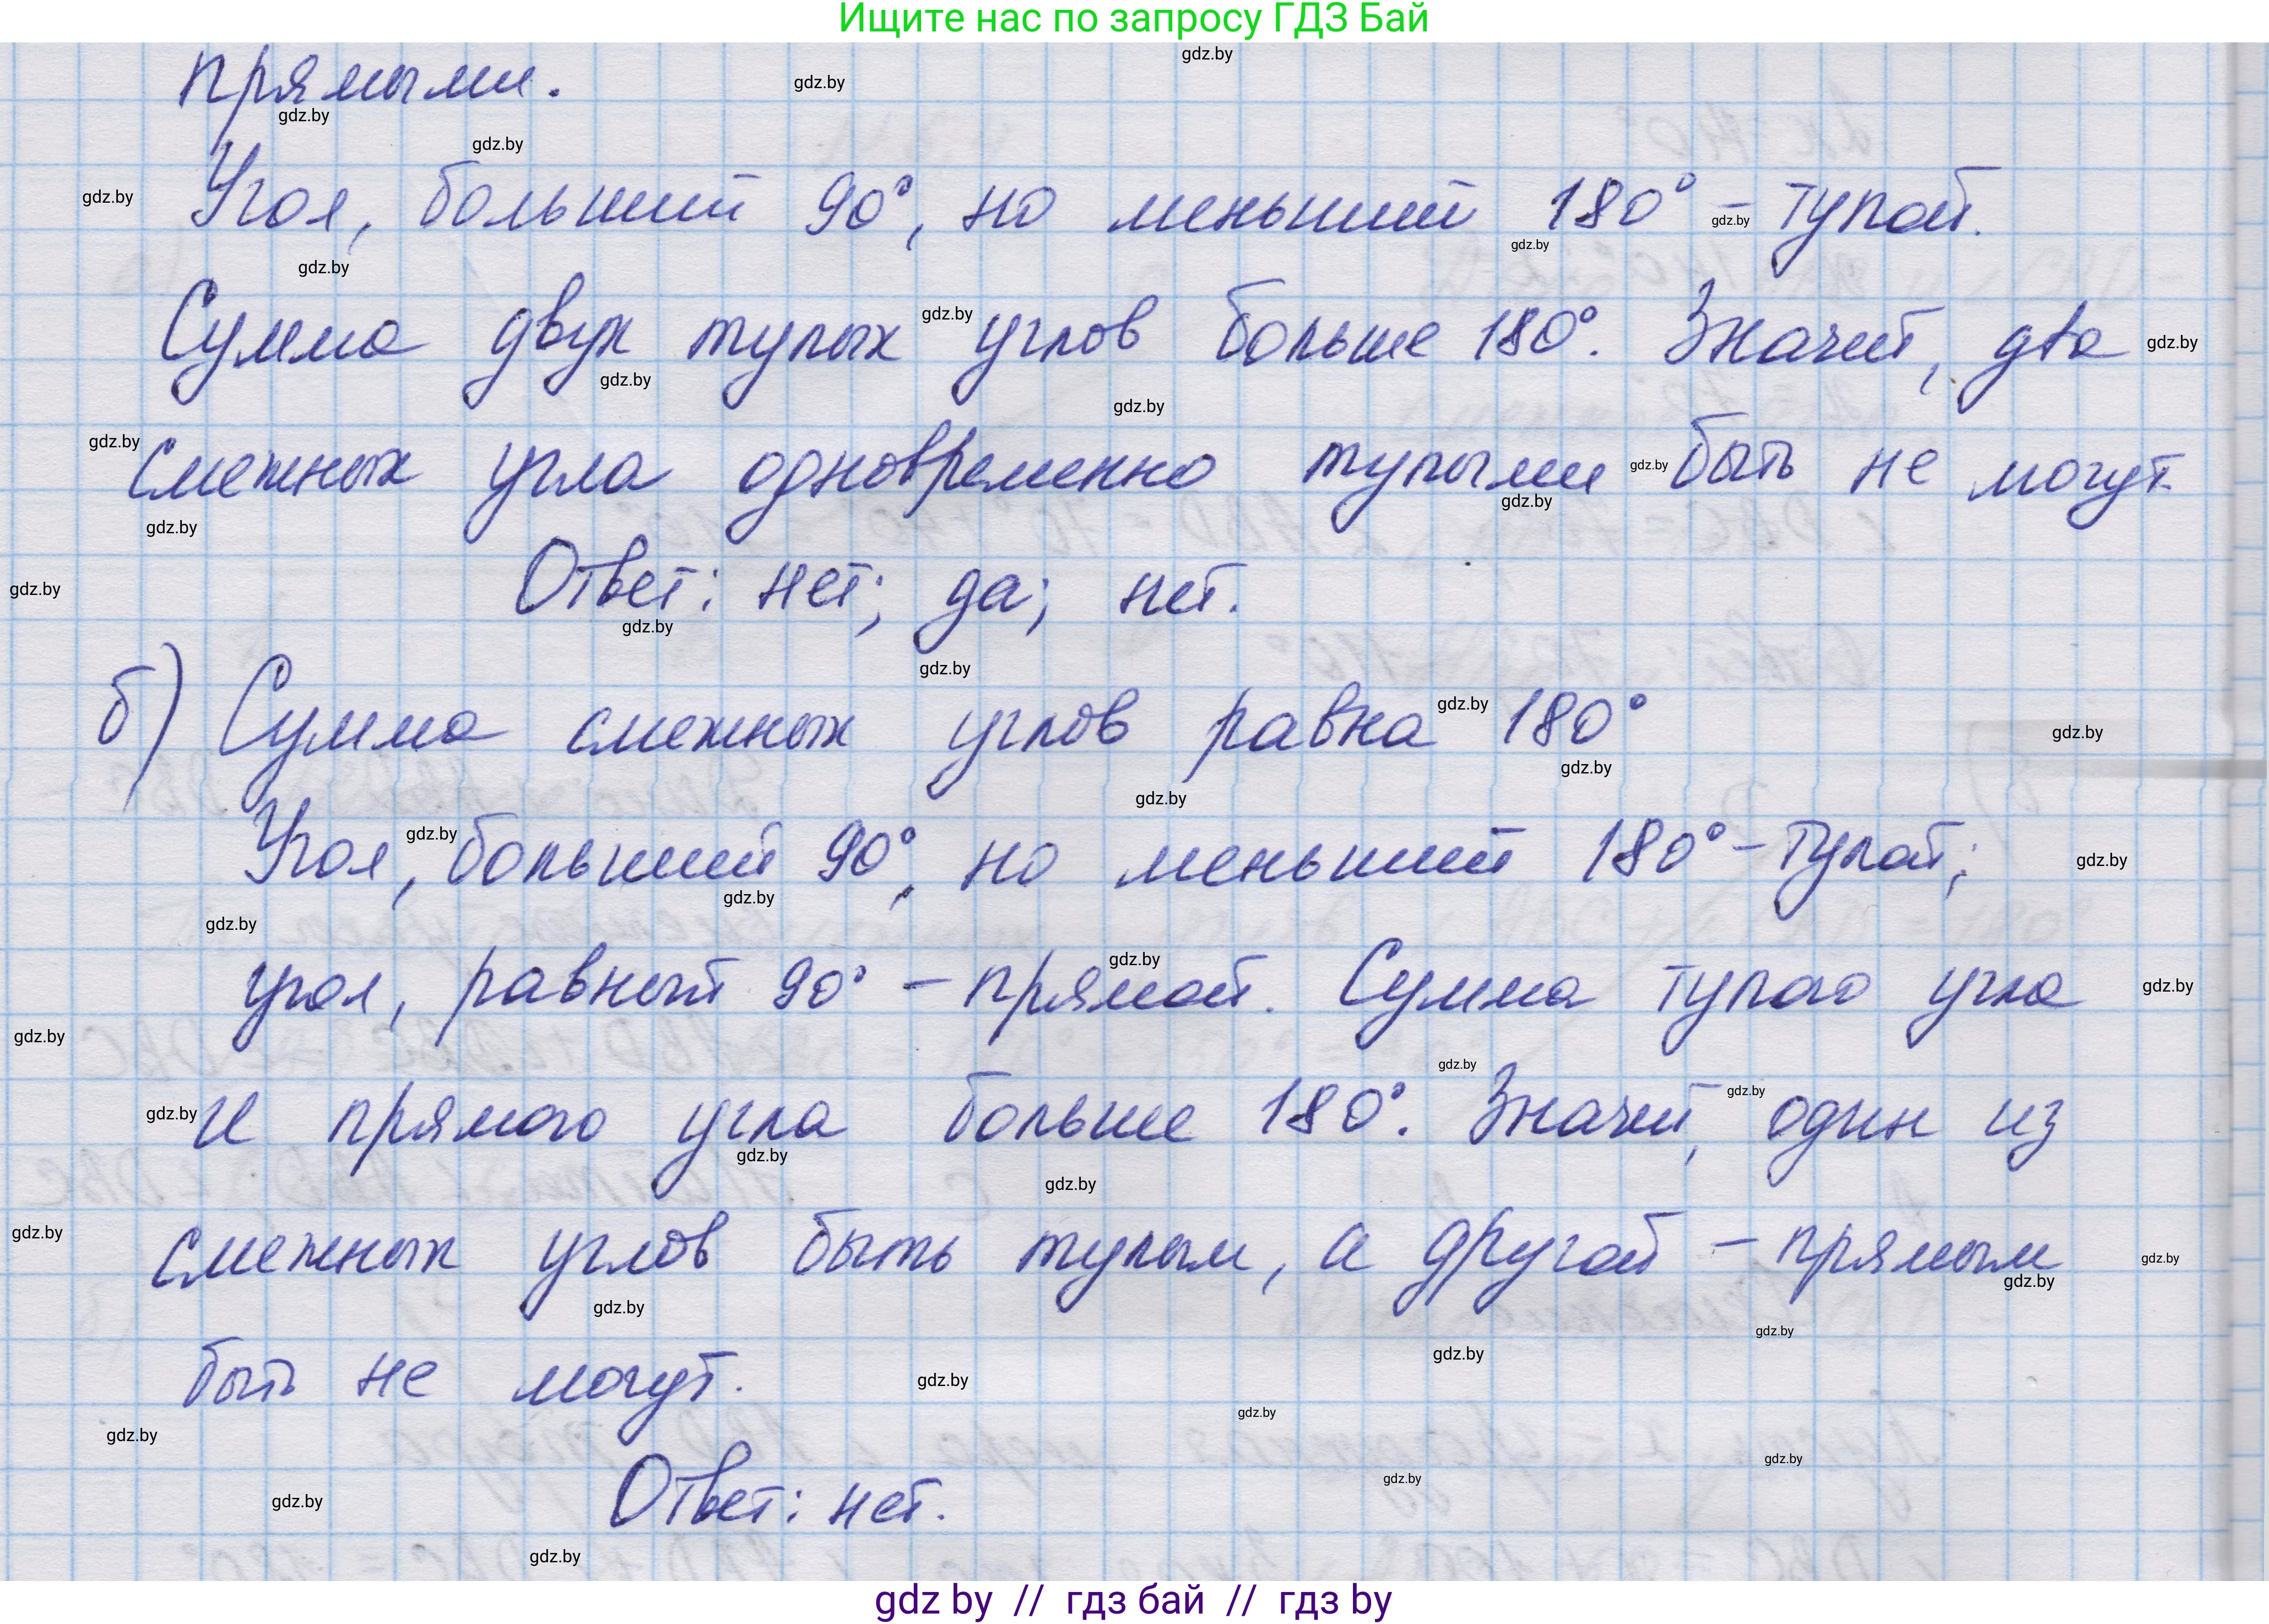 Ищите нас по запросу ГДЗ Бай
прямыми.
Угол, больший 90°, но меньший 180° - тупой.
Сумма двух тупых углов больше 180°. Значит, два
смежных угла одновременно тупыми быть не могут.
Ответ: нет; да; нет.
б) Сумма смежных углов равна 180°
Угол, больший 90°, но меньший 180° - тупой;
угол, равный 90° - прямой. Сумма тупого угла
и прямого угла больше 180°. Значит, один из
смежных углов быть тупым, а другой - прямым
быть не могут.
Ответ: нет.
gdz.by
gdz by // гдз бай // гдз by